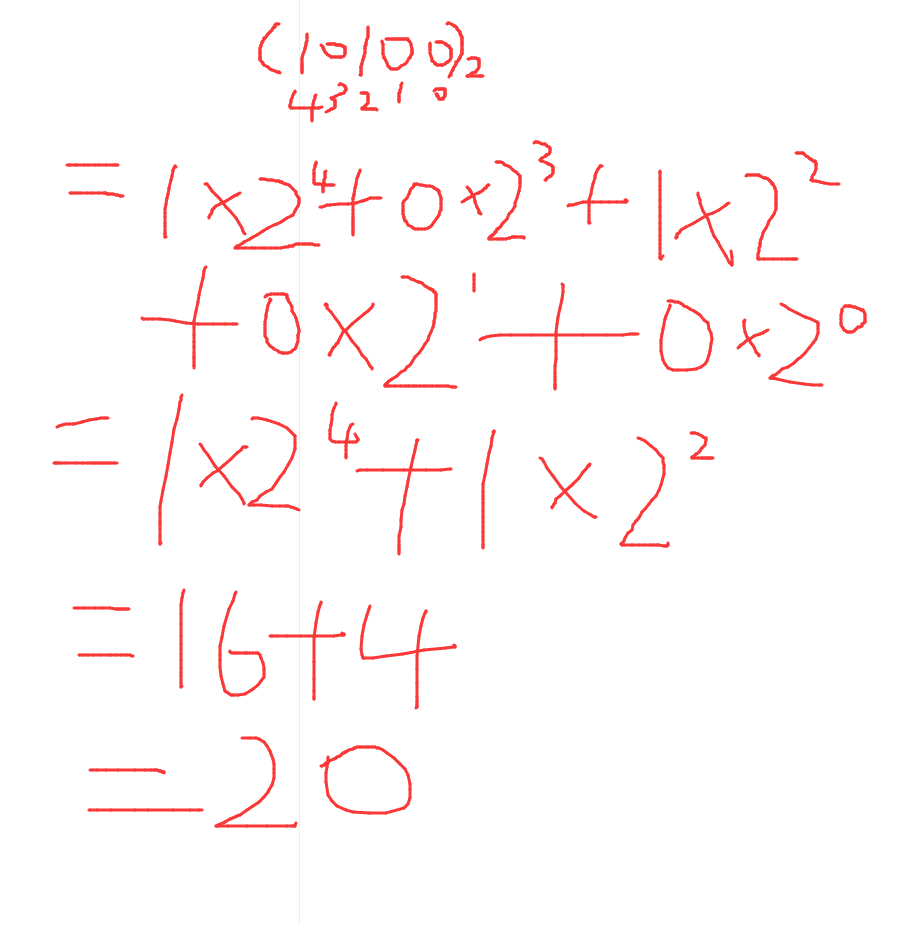 (10100)₂
4 3 2 1 0
= 1×2⁴+0×2³+1×2²
+0×2¹+0×2⁰
=1×2⁴+1×2²
=16+4
=20